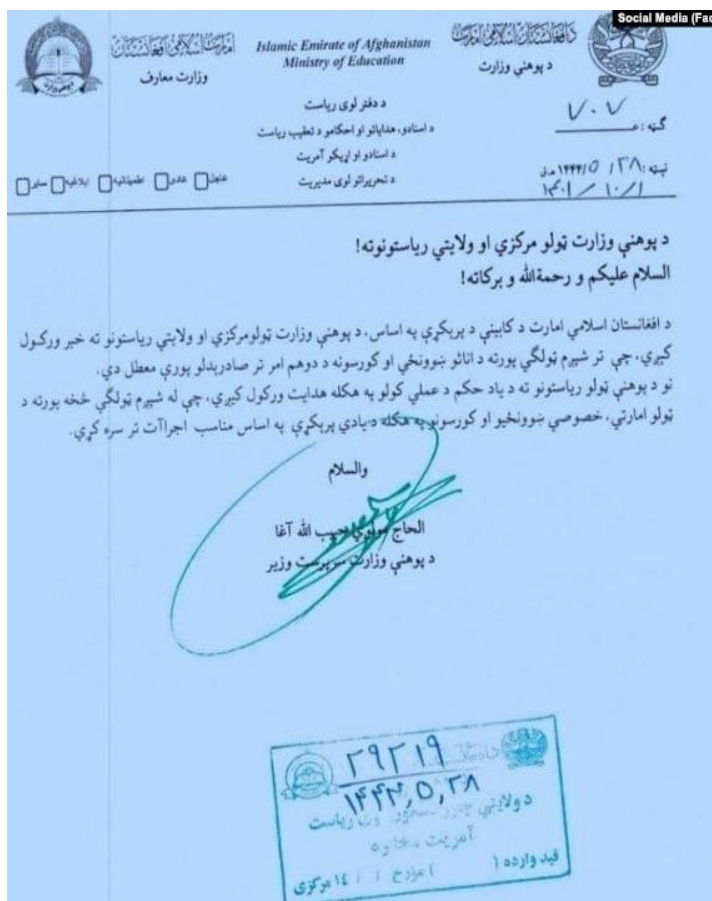 Social Media (Fac
امارت اسلامی افغانستان
وزارت معارف
Islamic Emirate of Afghanistan
Ministry of Education
د افغانستان اسلامي امارت
د پوهنې وزارت
د دفتر لوی ریاست
د اسنادو، هدایاتو او احکامو د تعقیب ریاست
د اسنادو او اړیکو آمریت
د تحریراتو لوی مدیریت
ګڼه: ۷۰۷
نېټه: ۱۴۴۴/۵/۲۸ هـ ق
۱۴۰۱/۱۰/۱
عاجل عادی اطمینانیه ابلاغیه سایر
د پوهنې وزارت ټولو مرکزي او ولایتي ریاستونوته!
السلام علیکم و رحمةالله و برکاته!
د افغانستان اسلامي امارت د کابینې د پرېکړې په اساس، د پوهنې وزارت ټولومرکزي او ولایتي ریاستونو ته خبر ورکول
کیږي، چې تر شپږم ټولګي پورته د اناثو ښوونځي او کورسونه د دوهم امر تر صادرېدلو پورې معطل دي.
نو د پوهنې ټولو ریاستونو ته د یاد حکم د عملي کولو په هکله هدایت ورکول کیږي، چې له شپږم ټولګي څخه پورته د
ټولو امارتي، خصوصي ښوونځیو او کورسونو په هکله د یادې پرېکړې په اساس مناسب اجراآت تر سره کړي.
والسلام
الحاج مولوي حبیب الله آغا
د پوهنې وزارت سرپرست وزیر
۲۹۲۱۹
۱۴۴۴,۵,۲۸
د ولایتي ریاست
آمریت مخابره
قید وارده ( ) مؤرخ / / ۱۴ مرکزی